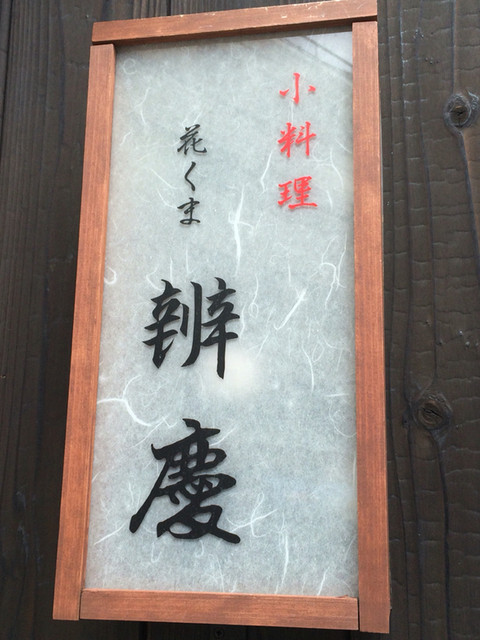 小料理
花くま
辨慶